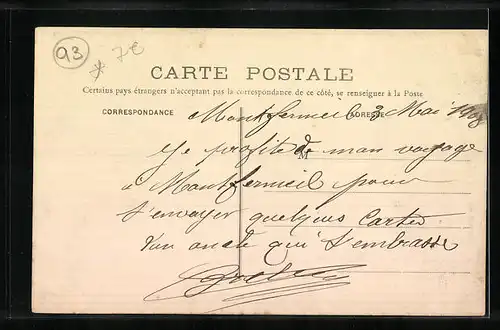 93
* 7€
CARTE POSTALE
Certains pays étrangers n'acceptant pas la correspondance de ce côté, se renseigner à la Poste
CORRESPONDANCE
ADRESSE
Montfermeil 3 Mai
Je profite de mon voyage
M
à Montfermeil pour
t'envoyer quelques cartes
Ton oncle qui t'embrasse